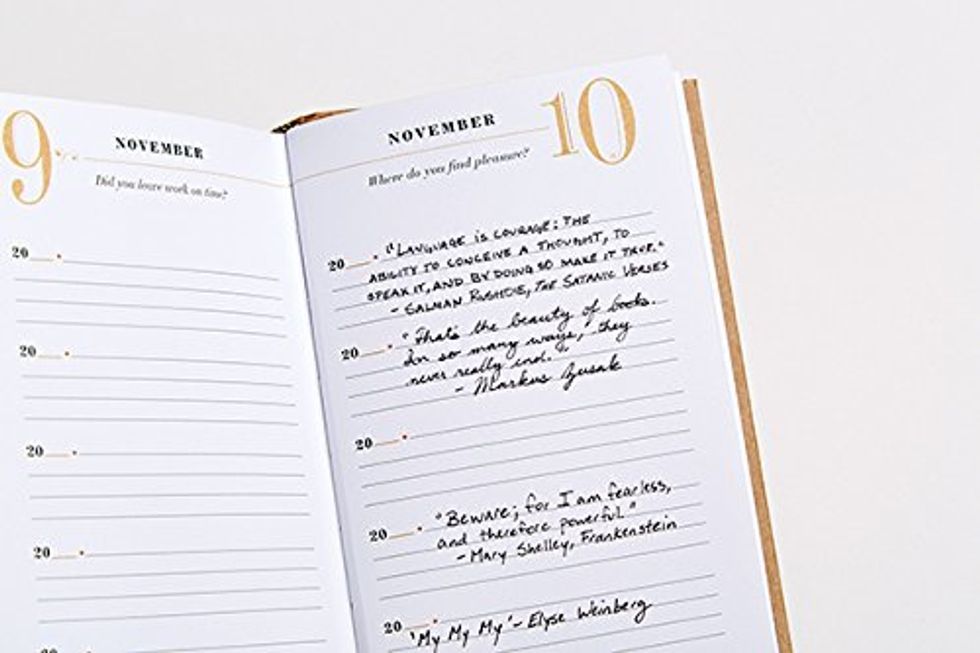 9
NOVEMBER
Did you leave work on time?
20
20
20
20
20
10
NOVEMBER
Where do you find pleasure?
20
"LANGUAGE IS COURAGE: THE
ABILITY TO CONCEIVE A THOUGHT, TO
SPEAK IT, AND BY DOING SO MAKE IT TRUE."
- SALMAN RUSHDIE, THE SATANIC VERSES
20
"That's the beauty of books.
In so many ways, they
never really end."
- Markus Zusak
20
20
"Beware; for I am fearless,
and therefore powerful."
- Mary Shelley, Frankenstein
20
'My My My' - Elyse Weinberg